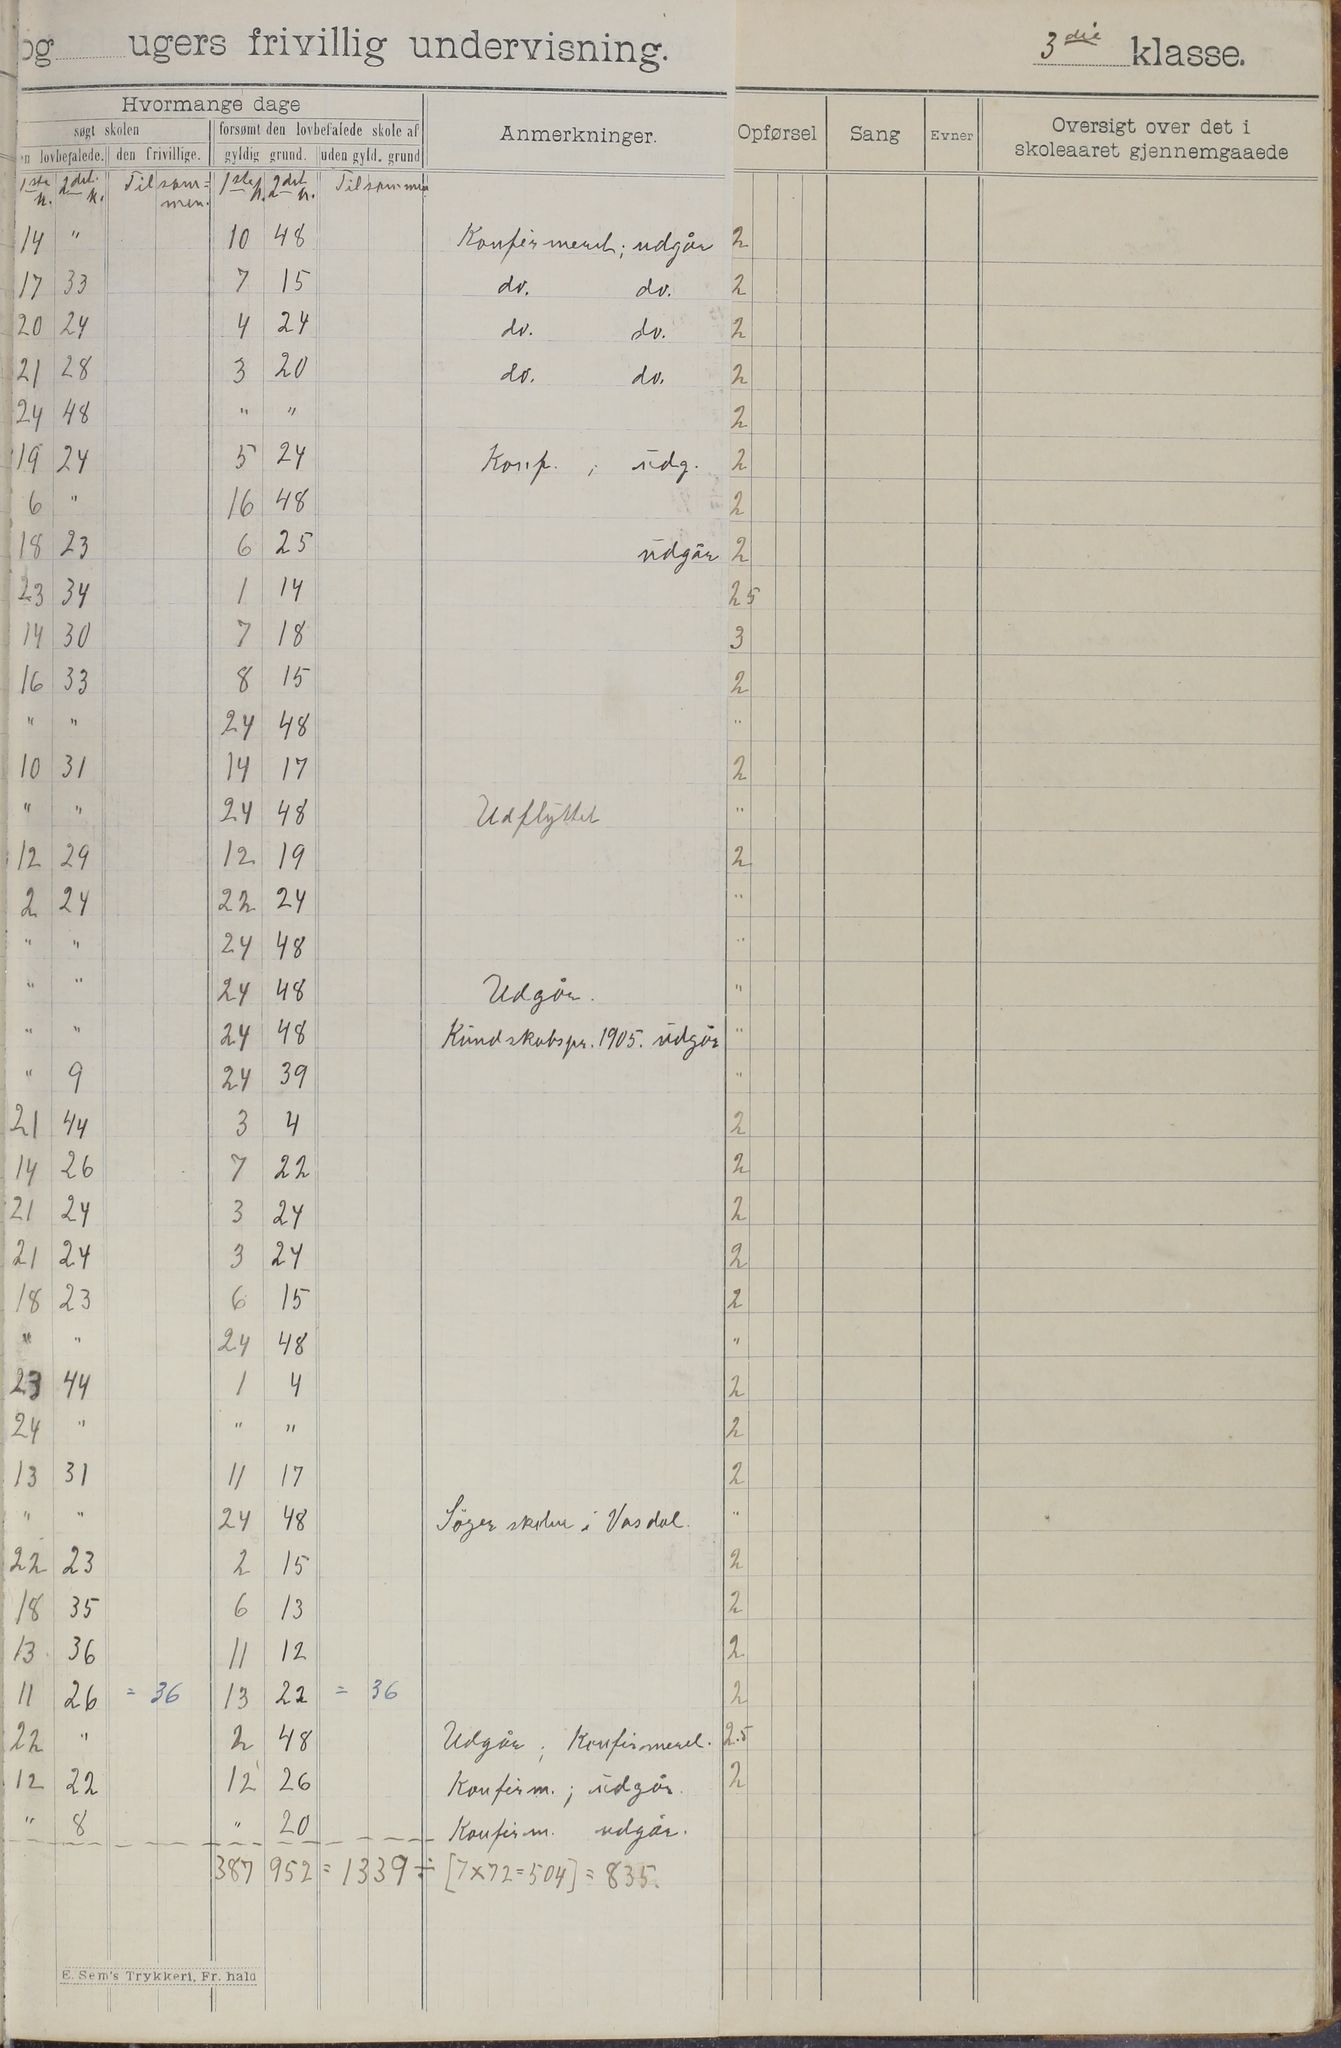 og ugers frivillig undervisning. 3die klasse.
Hvormange dage
søgt skolen forsømt den lovbefalede skole af Anmerkninger. Opførsel Sang Evner Oversigt over det i skoleaaret gjennemgaaede
en lovbefalede. den frivillige. gyldig grund. uden gyld. grund
1ste k. 2det k. Tilsammen. 1ste k. 2det k. Tilsammen
14 " 10 48 Konfirmeret; udgår 2
17 33 7 15 do. do. 2
20 24 4 24 do. do. 2
21 28 3 20 do. do. 2
24 48 " " 2
19 24 5 24 Konf. ; udg. 2
6 " 16 48 2
18 23 6 25 udgår 2
23 34 1 14 25
14 30 7 18 3
16 33 8 15 2
" " 24 48 "
10 31 14 17 2
" " 24 48 Udflyttet "
12 29 12 19 2
2 24 22 24 "
" " 24 48 "
" " 24 48 Udgår. "
" " 24 48 Kundskabspr. 1905. udgår "
" 9 24 39 "
21 44 3 4 2
14 26 7 22 2
21 24 3 24 2
21 24 3 24 2
18 23 6 15 2
" " 24 48 "
23 44 1 4 2
24 " " " 2
13 31 11 17 2
" " 24 48 Søger skolen i Vasdal. "
22 23 2 15 2
18 35 6 13 2
13 36 11 12 2
11 26 = 36 13 22 = 36 2
22 " 2 48 Udgår ; Konfirmeret. 2.5
12 22 12 26 Konfirm. ; udgår. 2
" 8 " 20 Konfirm. udgår.
387 952 = 1339 ÷ [7x72=504] = 835.
E. Sem's Trykkeri, Fr. hald